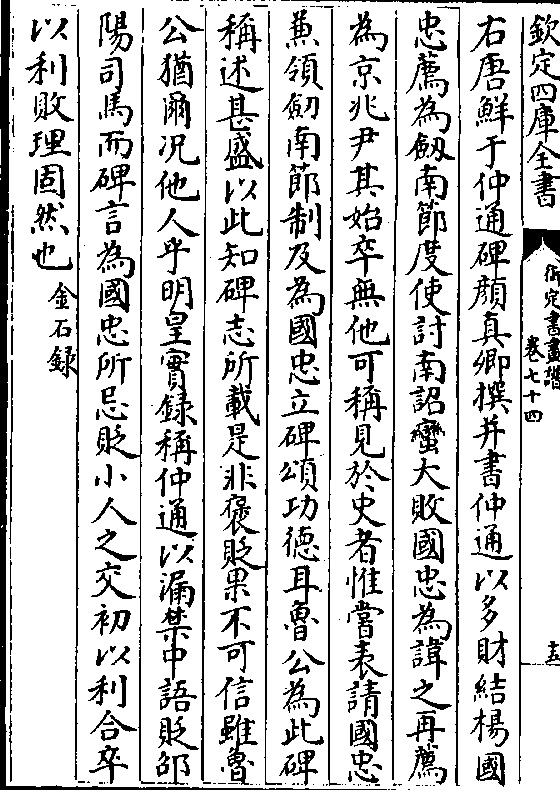 欽定四庫全書
御定書畫譜
卷七十四
十五
右唐鮮于仲通碑顔真卿撰并書仲通以多財結楊國
忠薦為劒南節度使討南詔蠻大敗國忠為諱之再薦
為京兆尹其始卒無他可稱見於史者惟嘗表請國忠
兼領劒南節制及為國忠立碑頌功德耳魯公為此碑
稱述甚盛以此知碑志所載是非褒貶果不可信雖魯
公猶爾况他人乎明皇實録稱仲通以漏禁中語貶邵
陽司馬而碑言為國忠所忌貶小人之交初以利合卒
以利敗理固然也金石録